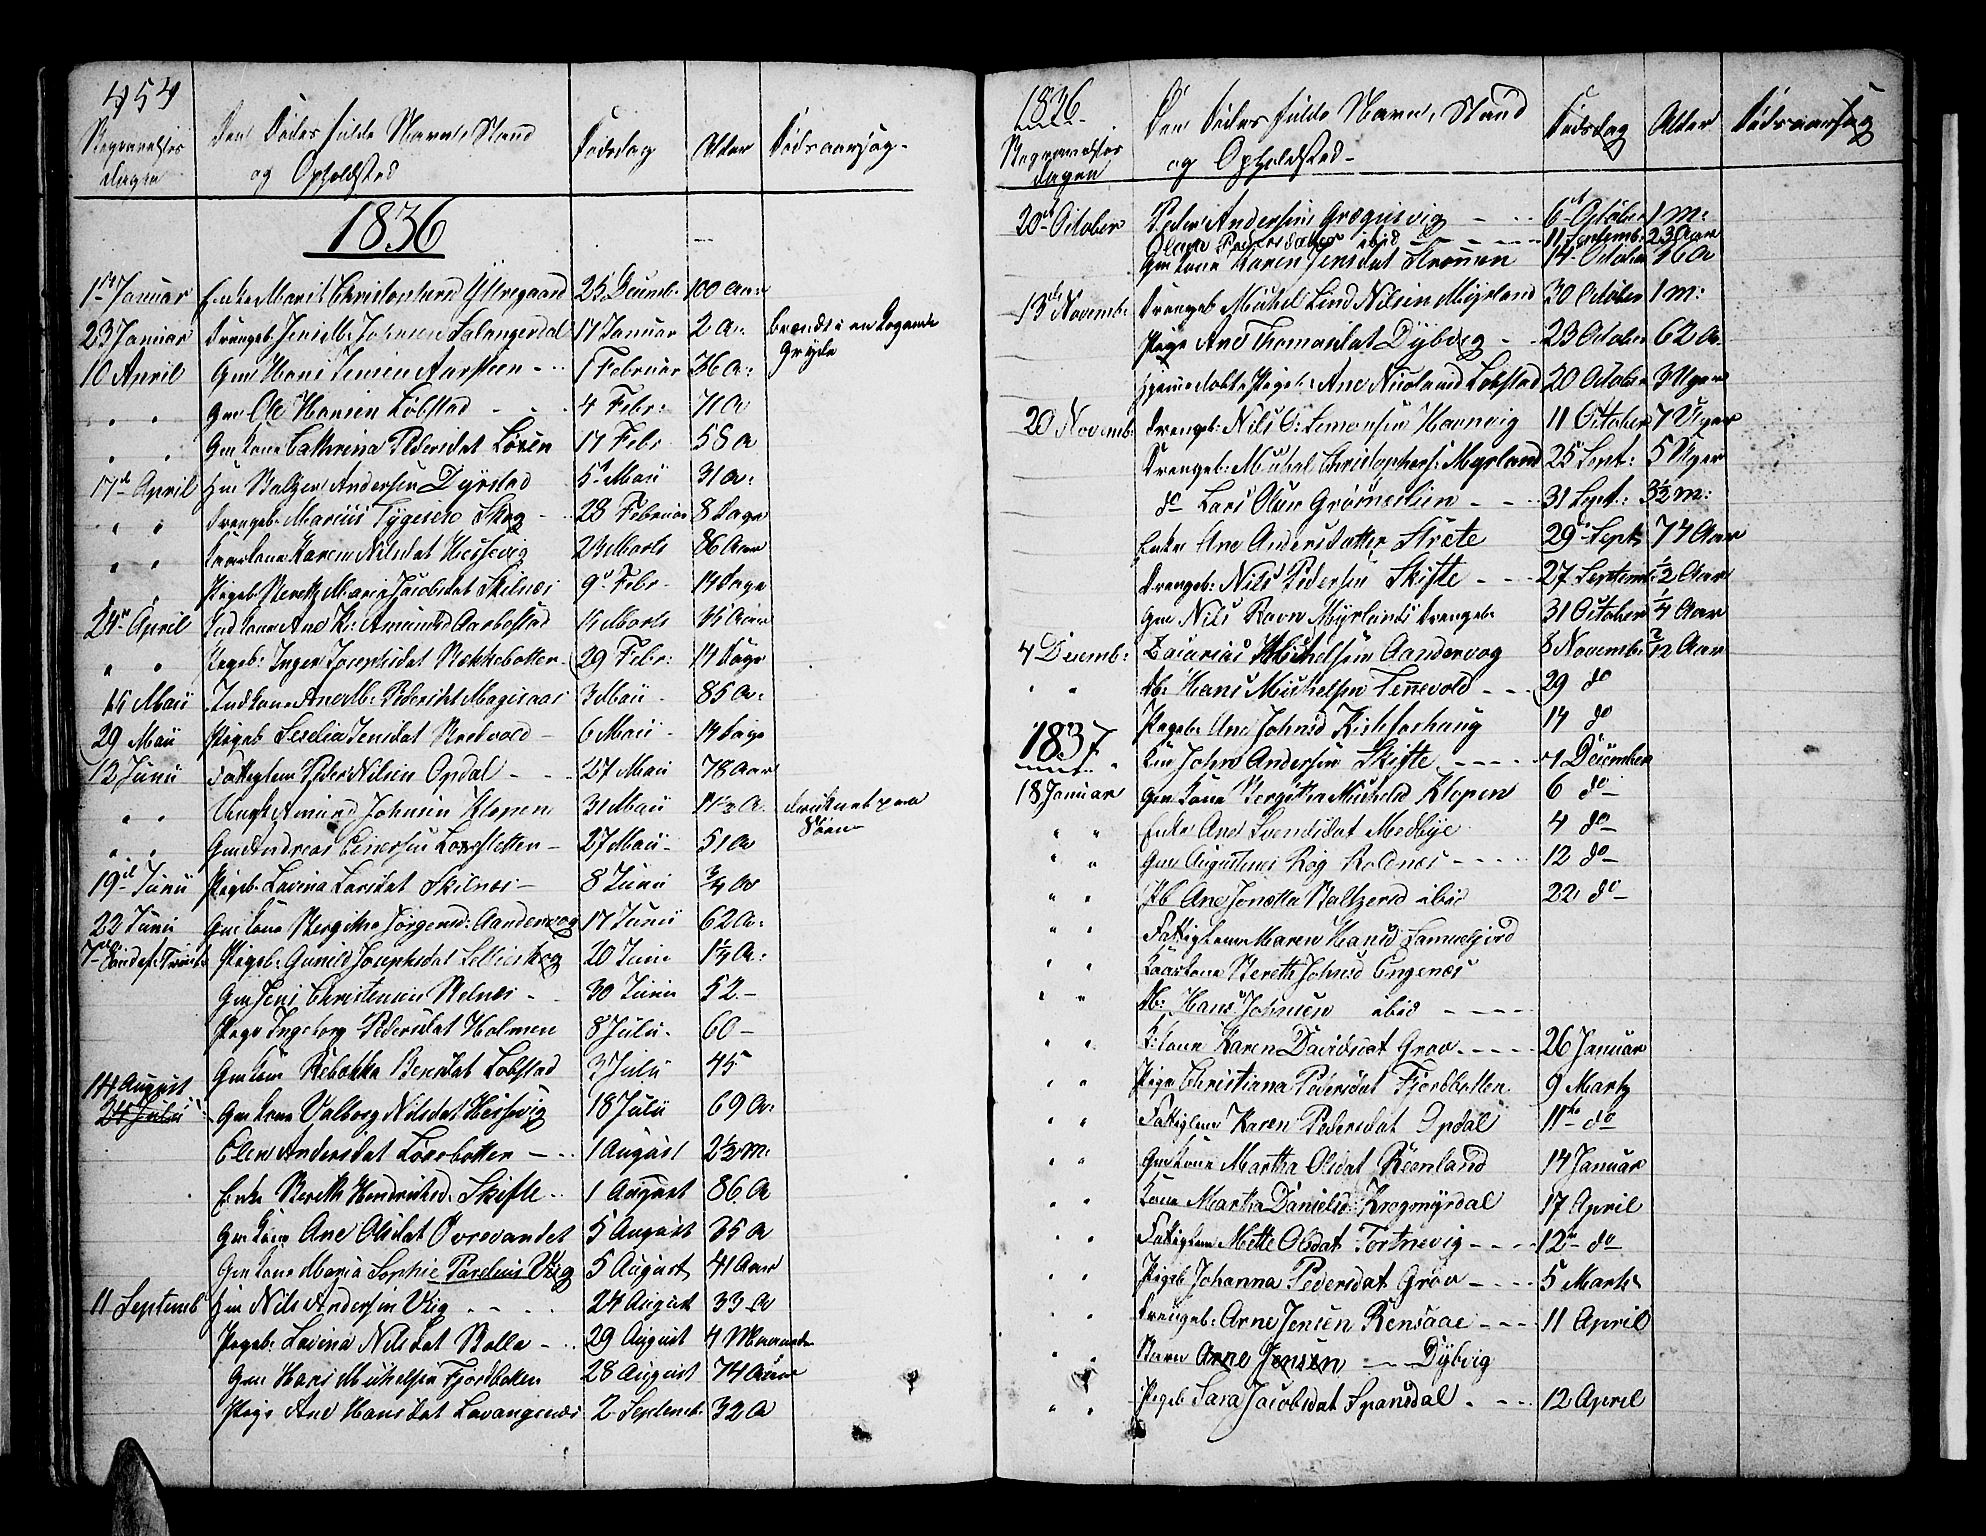 454
Begravelses dagen
Den Dødes fulde Navn, Stand og Opholdsted
Dødsdag
Alder
Dødsaarsag
1836
1ste Januar Enke Marit Christensd Yttregaard 25 Decemb: 100 Aar
23 Januar Drengeb: Jens M: Johnsen Salangerdal 17 Januar 2 A: brændt i en kogende Gryde
10 April Gm: Hans Jensen Aarsteen 1 Februar 36 A:
" " Gm Ole Hansen Løbstad 4 Febr: 71 A
" " Gm Kone Cathrina Pedersdat 17 Febr 58 A
17de April Gm Balzer Andersen Dyrstad 5t Maii 31 A:
" " Drengeb: Marius Tygesen Skog 28 Februar 8 Dage
" " Kaarkone Karen Nilsdat Hessevig 23 Marts 86 Aar
Pigeb: Bereth Maria Jacobsdat Skilnæs 9de Febr 14 Dage
24de April Indkone Ane K: Amundsd Aarbostad Marts Aar
" " Pigeb: Inger Josephsdat Rækkebotten 29 Febr: 14 Dage
16 Maii Indkone Ane M: Pedersdat 3 Maii 85 A:
29 Maii Pigeb Serelia Jensdat 6 Maii 14 Dage
12 Junii Fattiglem Peder Nilsen Opdal 27 Maii 78 Aar
" " Amund Johnsen Klopen 31 Maii 11½ A. druknet paa Søen
" " Gm Andreas Einersen 27 Maii 51 A
19de Junii Pigeb: Lavina Larsdat Skilnæs 8 Junii ¾ A
22 Junii Gm Kone Bergithe Jørgensd: Aandervog 17 Junii 62 A:
7de Pigeb: Gunild Josephsdat 20 Junii A:
Gm Jens Christensen 30 Junii 52
Pige Ingeborg Pedersdat Holmen 8 Julii 60
Gm Kone Rebekka Bensdat Løbstad 3 Julii 45
14 August
24 Julii Gm Kone Valborg Nilsdat Hessevig 18 Julii 69 A:
Elen Andersdat Løvsbotten 1 August 2½ M:
Enke Bereth Henriksd. Skifte 1 August 86 A
Gm Kone Ane Olsdat Øvrevandet 5 August 35 A
Gm Kone Maria Sophie Parelius Vig 5 August 41 Aar
11 Septemb Gm Nils Andersen Vig 24 August 33 A
Pigeb: Lavina Nilsdat Bolle 29 August 4 Maaneder
Gm Hans Michelsen Fjordbotten 28 August 74 Aar
Pige Ane Hansdat Lavangsnæs 2 Septemb: 32 A
1836
Begravelses dagen
Den Dødes fulde Navn, Stand og Opholdsted
Dødsdag
Alder
Dødsaarsag
20de October Peder Andersen Græguvig 6te October 1 M:
Olave Pedersdatter ibid 11 Septemb: 23 Aar
Gm Kone Karen Jensdat Strømen 14 October 46 A
13de Novemb: Drengeb: Michel Lind Nilsen Myrland 30 October 1 M:
Pige Ane Thomasdat Dybvig 23 October 62 A.
Hjemmedøbt Pigeb: Ane Nicolaisd Løbstad 20 October 3 Uger
20 Novemb: Drengeb: Nils O: Simonsen Havnvig 11 October 7 Uger
Drengeb: Michal Christophers: Myrland 25 Sept: 5 Uger
do Lars Olsen 31 Sept: 3½ M:
Enke Ane Andersdatter Strete 29de Sept 74 Aar
Drengeb: Nils Pedersen Skifte 27 Septemb: ½ Aar
Gm Nils Ravn Myrlands Drengeb: 31 October ¼ Aar
4 Decemb: Zacarias Michelsen Aandervog 8 Novemb: Aar
" " Hans Michelsen Tennevold 29 do
Pigeb: Ane Johnsd 14 do
1837
" John Andersen Skifte 1 December
18 Januar Gm Kone Bergitha Michelsd Klopen 6 do
" " Enke Ane Svendsdat Medbye 4 do
" " Gm Augustinus Røg Roldnæs 12 do
" " Pb Ane Jonetta Baltzersd ibid 22 do
" " Fattiglem Maren Hansd
" " Kaarkone Bereth Johnsd Engenæs
" " Hans Johnsen ibid
" " K: Kone Karen Davidsdat Grov 26 Januar
" " Pige Christiana Pedersdat Fjordbotten 9 Marts
" " Fattiglem Karen Pedersdat Opdal 11te do
" " Gm Kone Martha Olsdat 14 Januar
" " Kone Martha Danielsd: Krogmyrdal 17 April
" " Fattiglem Mette Olsdat Fortnevig 12te do
" " Pigeb Johanna Pedersdat Grov 5 Marts
" " Drengeb: Arne Jensen Rensaae 11 April
" " Barn Arne Jensen Dybvig
" " Pigeb: Sara Jacobsdat Spansdal 12 April